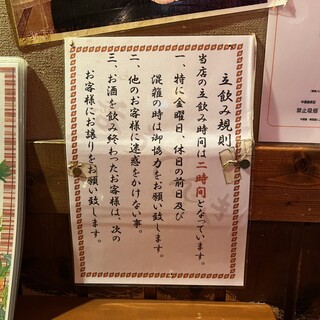 立飲み規則
当店の立飲み時間は二時間となっています。
一、特に金曜日、休日の前日及び
混雑の時は御協力をお願い致します。
二、他のお客様に迷惑をかけない事。
三、お酒を飲み終わったお客様は、次の
お客様にお譲りをお願い致します。